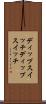 ディップスイ
ッチディップ
スイッチ